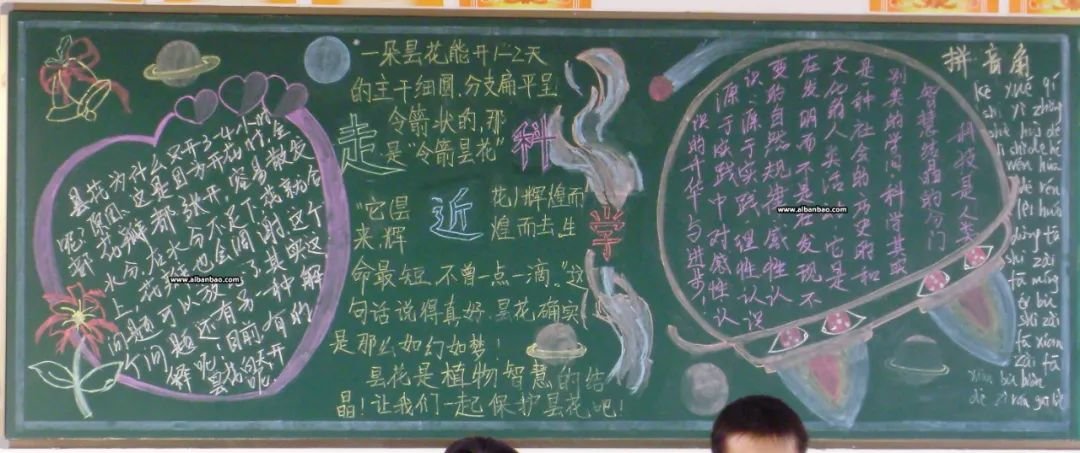 一朵昙花能开1-2天
的主干细圆,分支扁平呈
令箭状的,那
是“令箭昙花”
走
近
科
学
“它昙花!辉煌而
来,辉煌而去,生
命最短,不曾一点一滴。”这
句话说得真好.昙花确实
是那么如幻如梦!
昙花是植物智慧的结
晶!让我们一起保护昙花吧!
昙花为什么又开3-4小时
呢?原因:这是因为开花时,全
部花瓣都张开,容易散发
水分,在水分不足下,花就会
上,花也会凋谢.这个
问题可以放了.其实这
个问题还有另一种解
解呢,目前有的
昙花的开
呢.
科技是人类
智慧结晶的分门
别类的学问,科学其实
是一种社会的历史的和
文化的人类活动,它是
在发明而不是在发现不
变的自然规律,感性认
识源于实践,理性认识
源于实践中对感性认
识的升华与进步!
拼音角
kē xué qí
shí yì zhǒng
www.albanbao.com
www.albanbao.com
www.albanbao.com